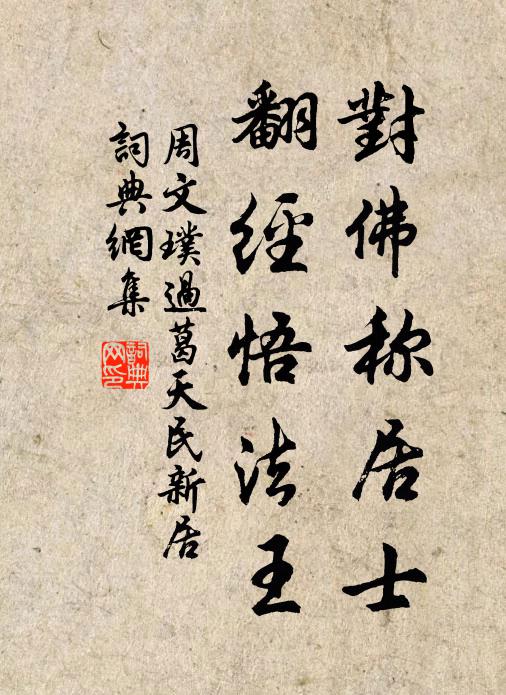 對佛称居士
翻經悟法王
周文璞過葛天民新居
詞典網集
詞典網印